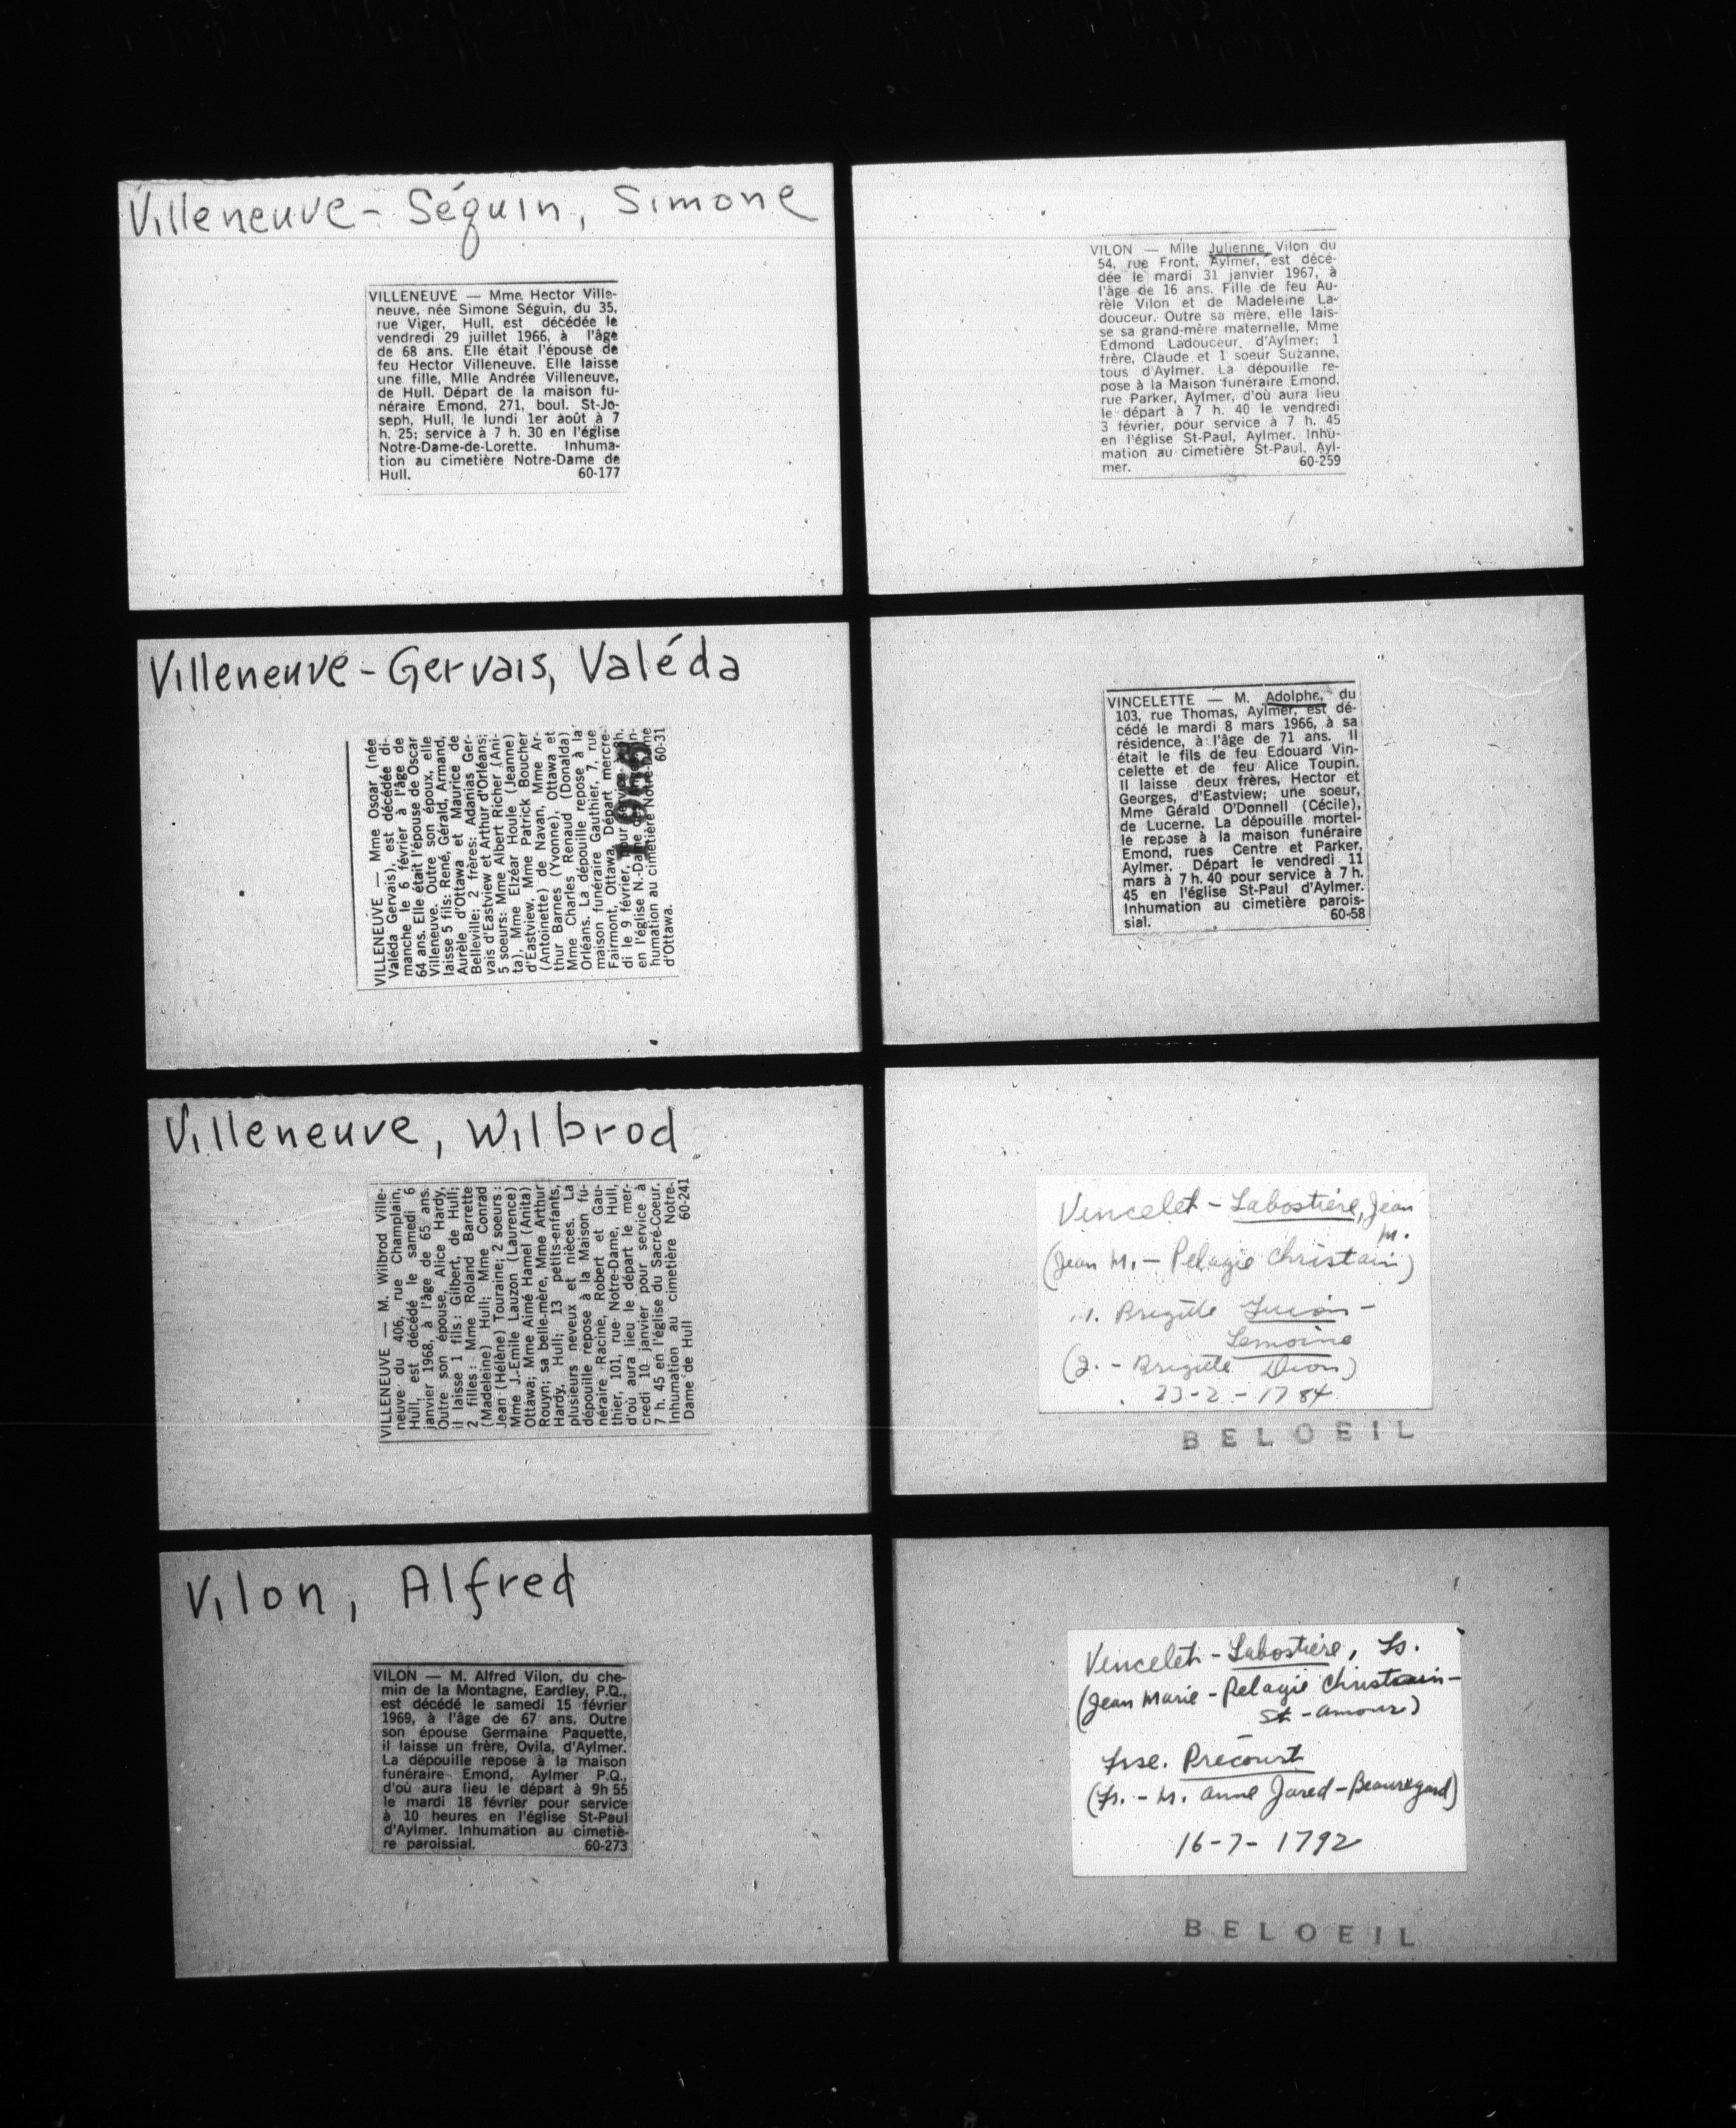 Villeneuve - Séguin, Simone
VILLENEUVE — Mme Hector Ville-
neuve, née Simone Séguin, du 35,
rue Viger, Hull, est décédée le
vendredi 29 juillet 1966, à l'âge
de 68 ans. Elle était l'épouse de
feu Hector Villeneuve. Elle laisse
une fille, Mlle Andrée Villeneuve,
de Hull. Départ de la maison fu-
néraire Emond, 271, boul. St-Jo-
seph, Hull, le lundi 1er août à 7
h. 25; service à 7 h. 30 en l'église
Notre-Dame-de-Lorette. Inhuma-
tion au cimetière Notre-Dame de
Hull. 60-177
Villeneuve - Gervais, Valéda
VILLENEUVE — Mme Oscar (née
Valéda Gervais), est décédée di-
manche le 6 février à l'âge de
64 ans. Elle était l'épouse de Oscar
Villeneuve. Outre son époux, elle
laisse 5 fils: René, Gérald, Armand,
Aurèle d'Ottawa et Maurice de
Belleville; 2 frères: Adanias Ger-
vais d'Eastview et Arthur d'Orléans;
5 soeurs: Mme Albert Richer (Ani-
ta), Mme Elzéar Houle (Jeanne)
d'Eastview, Mme Patrick Boucher
(Antoinette) de Navan, Mme Ar-
thur Barnes (Yvonne), Ottawa et
Mme Charles Renaud (Donalda)
Orléans. La dépouille repose à la
maison funéraire Gauthier, 7, rue
Fairmont, Ottawa. Départ mercre-
di le 9 février, pour service à 8h.
en l'église N.-Dame In-
humation au cimetière Notre-Dame
d'Ottawa. 60-31
Villeneuve, Wilbrod
VILLENEUVE — M. Wilbrod Ville-
neuve du 406, rue Champlain,
Hull, est décédé le samedi 6
janvier 1968, à l'âge de 65 ans.
Outre son épouse, Alice Hardy,
il laisse 1 fils: Gilbert, de Hull;
2 filles: Mme Roland Barrette
(Madeleine) Hull; Mme Conrad
Jean (Hélène) Touraine; 2 soeurs:
Mme J.-Emile Lauzon (Laurence)
Ottawa; Mme Aimé Hamel (Anita)
Rouyn; sa belle-mère, Mme Arthur
Hardy, Hull; 13 petits-enfants,
plusieurs neveux et nièces. La
dépouille repose à la Maison fu-
néraire Racine, Robert et Gau-
thier, 101, rue Notre-Dame, Hull,
d'où aura lieu le départ le mer-
credi 10 janvier pour service à
7 h. 45 en l'église du Sacré-Coeur.
Inhumation au cimetière Notre-
Dame de Hull 60-241
Vilon, Alfred
VILON — M. Alfred Vilon, du che-
min de la Montagne, Eardley, P.Q.,
est décédé le samedi 15 février
1969, à l'âge de 67 ans. Outre
son épouse Germaine Paquette,
il laisse un frère, Ovila, d'Aylmer.
La dépouille repose à la maison
funéraire Emond, Aylmer P.Q.,
d'où aura lieu le départ à 9h 55
le mardi 18 février pour service
à 10 heures en l'église St-Paul
d'Aylmer. Inhumation au cimetiè-
re paroissial. 60-273
VILON — Mlle Julienne Vilon du
54, rue Front, Aylmer, est décé-
dée le mardi 31 janvier 1967, à
l'âge de 16 ans. Fille de feu Au-
rèle Vilon et de Madeleine La-
douceur. Outre sa mère, elle lais-
se sa grand-mère maternelle, Mme
Edmond Ladouceur, d'Aylmer; 1
frère, Claude et 1 soeur Suzanne,
tous d'Aylmer. La dépouille re-
pose à la Maison funéraire Emond,
rue Parker, Aylmer, d'où aura lieu
le départ à 7 h. 40 le vendredi
3 février, pour service à 7 h. 45
en l'église St-Paul, Aylmer. Inhu-
mation au cimetière St-Paul, Ayl-
mer. 60-259
VINCELETTE — M. Adolphe, du
103, rue Thomas, Aylmer, est dé-
cédé le mardi 8 mars 1966, à sa
résidence, à l'âge de 71 ans. Il
était le fils de feu Edouard Vin-
celette et de feu Alice Toupin.
Il laisse deux frères, Hector et
Georges, d'Eastview; une soeur,
Mme Gérald O'Donnell (Cécile),
de Lucerne. La dépouille mortel-
le repose à la maison funéraire
Emond, rues Centre et Parker,
Aylmer. Départ le vendredi 11
mars à 7 h. 40 pour service à 7 h.
45 en l'église St-Paul d'Aylmer.
Inhumation au cimetière parois-
sial. 60-58
Vincelet - Labostière, Jean
M.
(Jean M. - Pelagie Christain)
1. Brigitte
Lemoine
(2. - Brigitte Dion)
23-2-1784
BELOEIL
Vincelet - Labostière, Fs.
(Jean Marie - Pelagie Christain -
St-amour)
Frse. Précourt
(Fs. - M. Anne Jared - Beauregard)
16-7-1792
BELOEIL